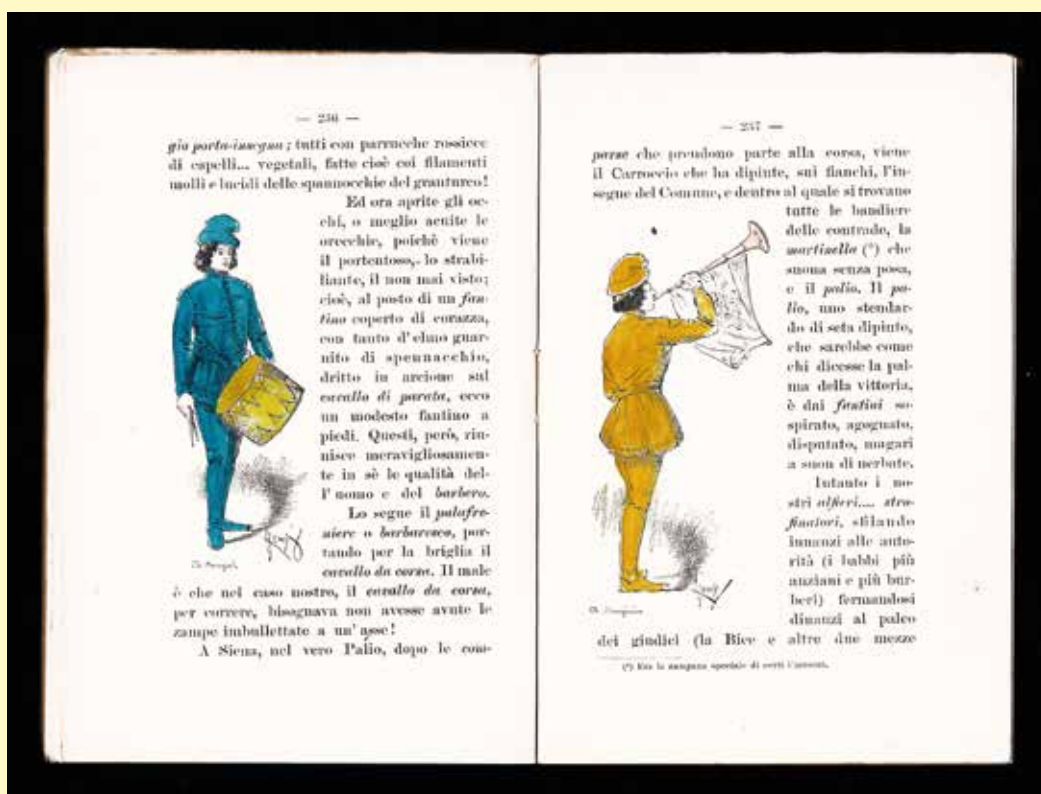 — 256 —
gio porta-insegna; tutti con parrucche rossicce
di capelli... vegetali, fatte cioè coi filamenti
molli e lucidi delle spannocchie del granturco!
Ed ora aprite gli oc-
chi, o meglio acuite le
orecchie, poichè viene
il portentoso, lo strabi-
liante, il non mai visto;
cioè, al posto di un fan-
tino coperto di corazza,
con tanto d'elmo guar-
nito di spennacchio,
dritto in arcione sul
cavallo di parata, ecco
un modesto fantino a
piedi. Questi, però, riu-
nisce meravigliosamen-
te in sè le qualità del-
l'uomo e del barbero.
Lo segue il palafre-
niere o barbaresco, por-
tando per la briglia il
cavallo da corsa. Il male
è che nel caso nostro, il cavallo da corsa,
per correre, bisognava non avesse avute le
zampe imbullettate a un'asse!
A Siena, nel vero Palio, dopo le com-
— 257 —
parse che prendono parte alla corsa, viene
il Carroccio che ha dipinte, sui fianchi, l'in-
segne del Comune, e dentro al quale si trovano
tutte le bandiere
delle contrade, la
martinella (*) che
suona senza posa,
e il palio. Il pa-
lio, uno stendar-
do di seta dipinto,
che sarebbe come
chi dicesse la pal-
ma della vittoria,
è dai fantini so-
spirato, agognato,
disputato, magari
a suon di nerbate.
Intanto i no-
stri alfieri.... stro-
finatori, sfilando
innanzi alle auto-
rità (i babbi più
anziani e più bur-
beri) fermandosi
dinanzi al palco
dei giudici (la Bice e altre due mezze
(*) Era la campana speciale di certi